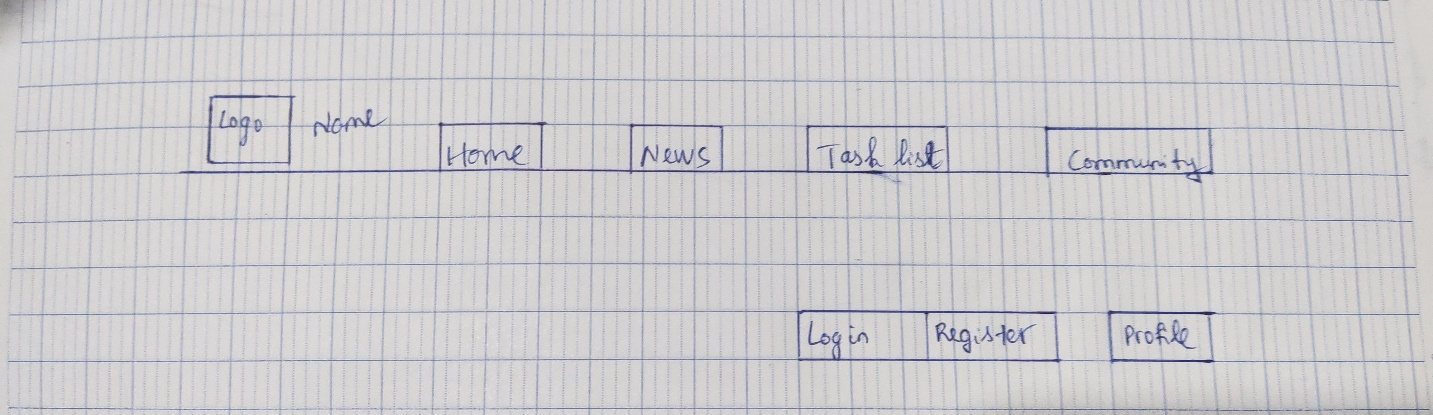 Logo Name Home News Task list Community
Login Register Profile